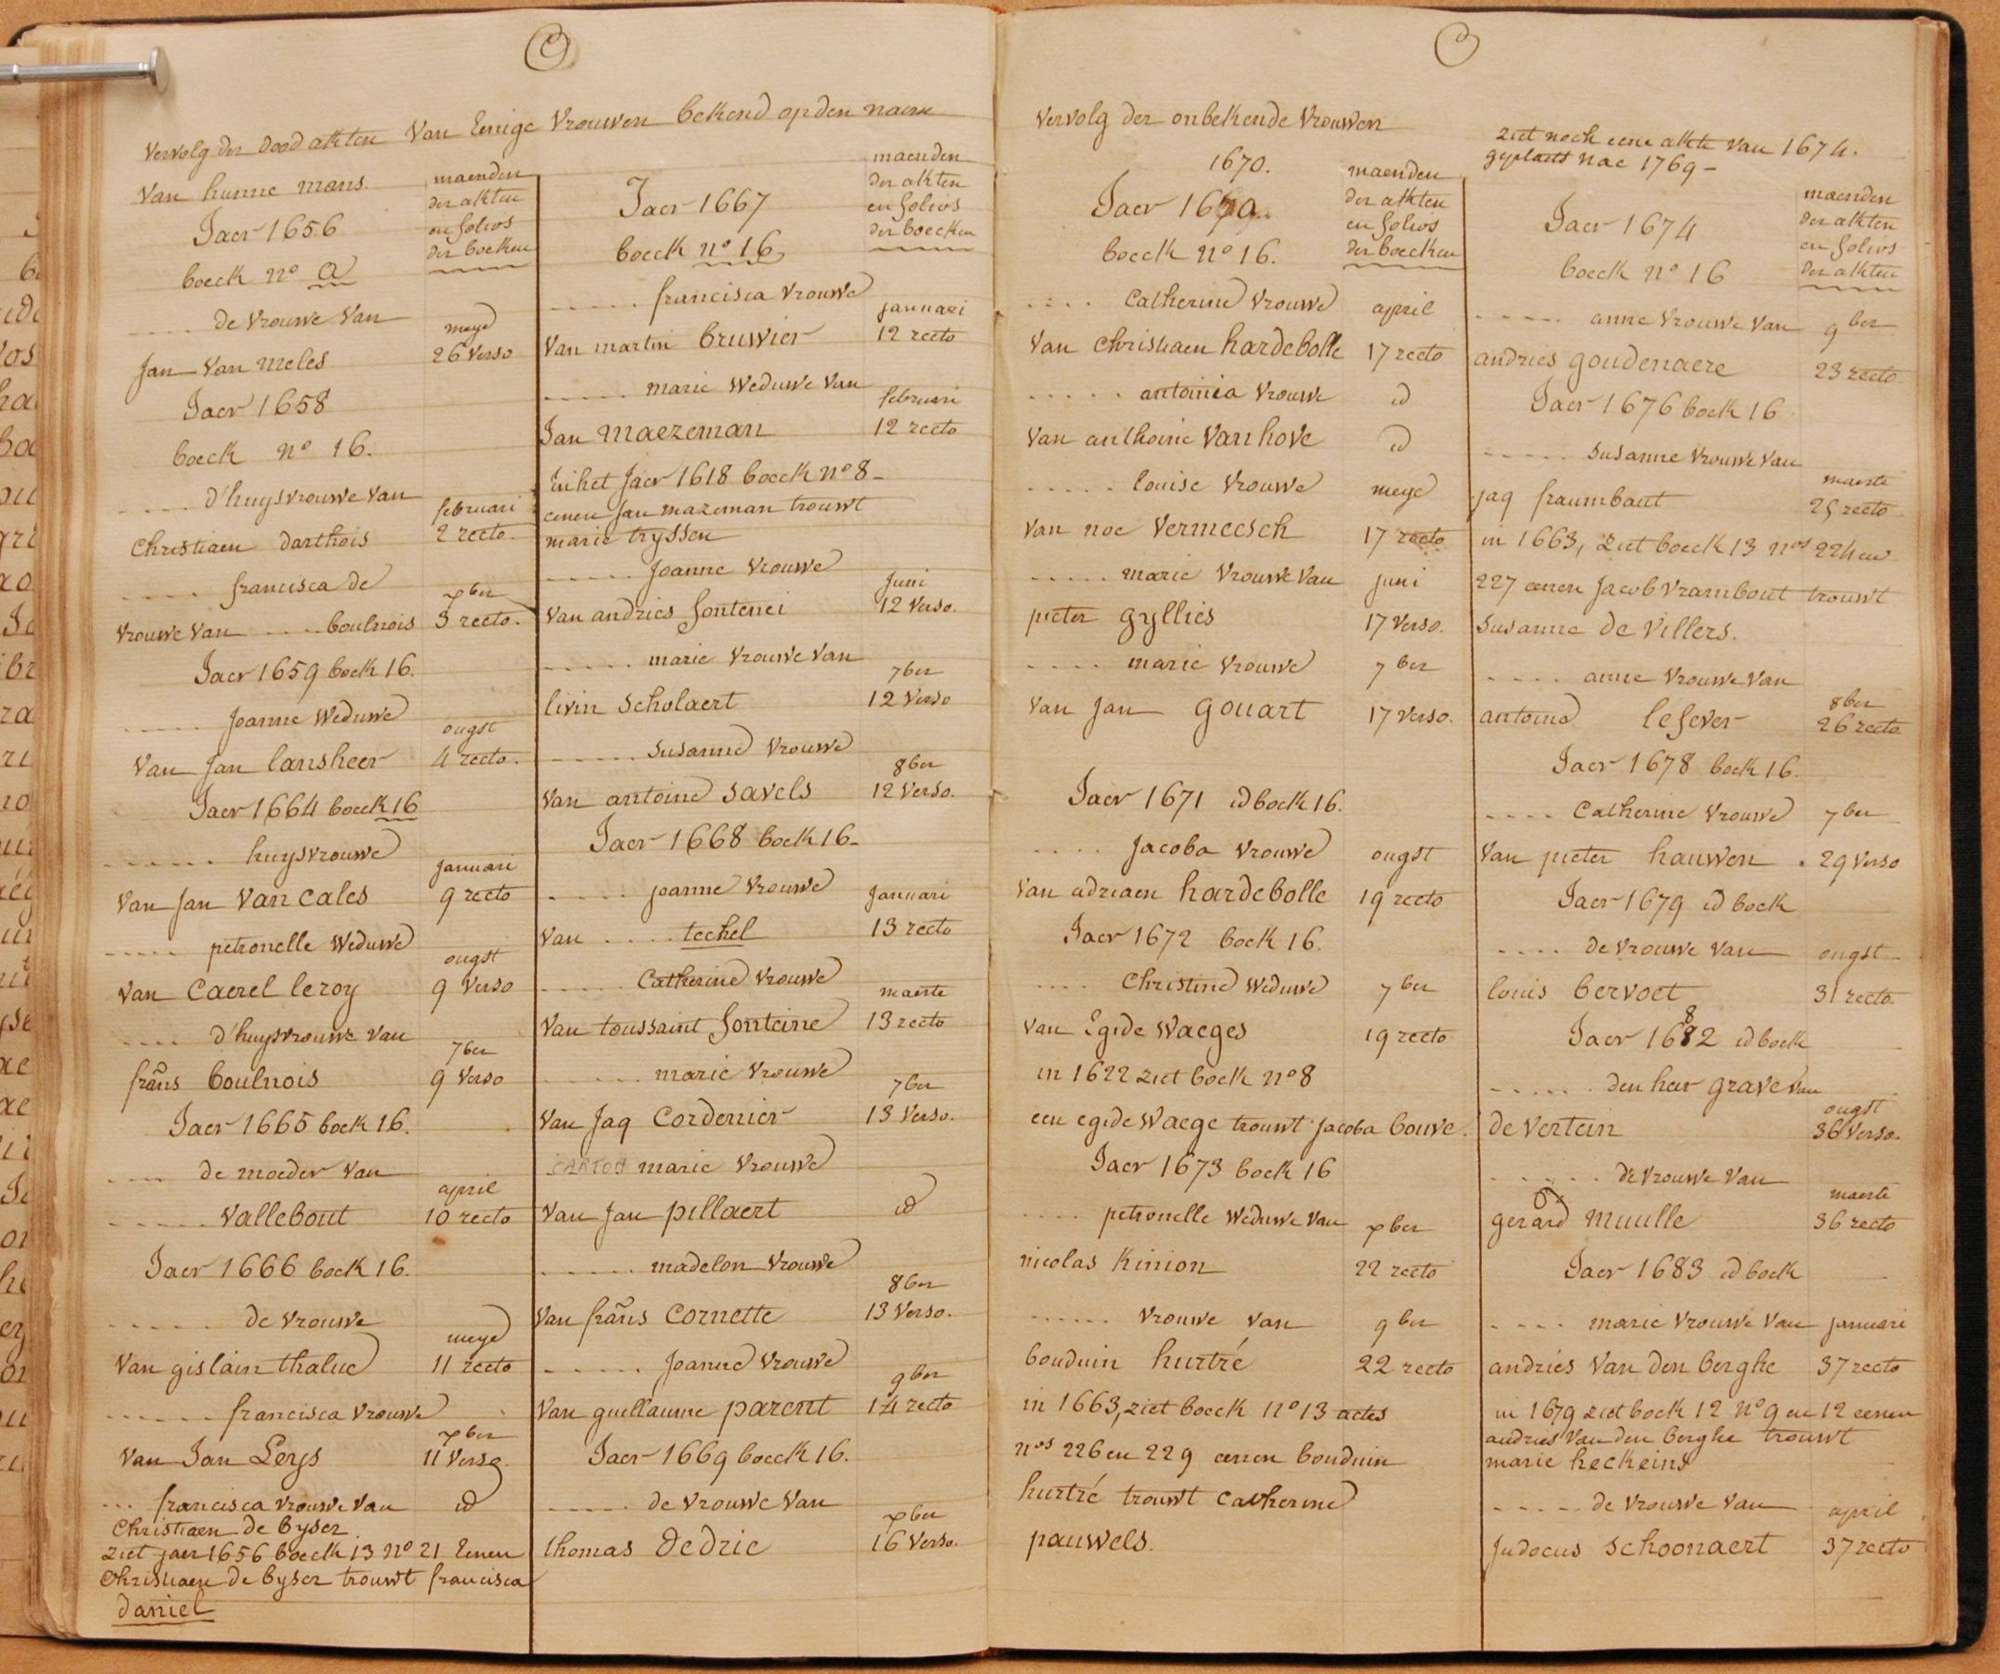 Vervolg der dood akten Van Eenige Vrouwen bekend op den naem
Van hunne mans.
maenden
der akten
en folios
der boeken
Jaer 1656
boeck n° a
..... de vrouwe Van
meye
Jan Van meles 26 Verso
Jaer 1658
boeck n° 16.
.... d'huysvrouwe van
februari
Christiaen darthois 2 recto.
.... francisca de
xber
vrouwe van .... boulnois 3 recto.
Jaer 1659 boek 16.
..... Joanne Weduwe
ougst
Van Jan lansheer 4 recto.
Jaer 1664 boeck 16
...... huysvrouwe
Januari
Van Jan Van Cales 9 recto
..... petronelle Weduwe
ougst
Van Caerel leroy 9 Verso
.... d'huysvrouwe van
7ber
frans boulnois 9 Verso
Jaer 1665 boek 16.
.... de moeder van
april
...... Vallebout 10 recto
Jaer 1666 boek 16.
...... de vrouwe
meye
Van gislain thalue 11 recto
...... francisca vrouwe
xber
Van Jan Leys 11 Verso
... francisca vrouwe van id
Christiaen de byser
ziet jaer 1656 boeck 13 n° 21 Eenen
Christiaen de byser trouwt francisca
daniel
Jaer 1667
maenden
der akten
en folios
der boecken
boeck n° 16
..... francisca vrouwe
januari
Van martin bruvier 12 recto
..... marie Weduwe van
februari
Jan maezeman 12 recto
In het Jaer 1618 boeck n° 8 -
eenen Jan mazeman trouwt
marie tryssen
..... Joanne vrouwe
Juni
Van andries fontenei 12 Verso.
..... marie vrouwe van
7ber
livin scholaert 12 Verso
..... susanne vrouwe
8ber
Van antoine savels 12 Verso.
Jaer 1668 boek 16-
..... joanne vrouwe Januari
Van .... techel 13 recto
..... Catherine vrouwe
maerte
Van toussaint fonteine 13 recto
..... marie vrouwe
7ber
Van Jaq Cordenier 13 Verso.
marie vrouwe
Van Jan pillaert id
..... madelon vrouwe
8ber
Van frans Cornette 13 Verso.
..... Joanne vrouwe
9ber
Van guellaume parent 14 recto
Jaer 1669 boeck 16.
..... de vrouwe van
xber
thomas dedrie 16 Verso.
Vervolg der onbekende Vrouwen
1670.
Jaer 1669.
maenden
der akten
en folios
der boecken
boeck n° 16.
.... Catherine vrouwe april
Van Christiaen hardebolle 17 recto
..... antonia vrouwe id
Van anthoine Vanhove id
..... louise vrouwe meye
Van noe Vermeesch 17 recto
..... marie vrouwe van juni
pieter gyllies 17 Verso.
.... marie vrouwe 7ber
Van Jan gouart 17 Verso.
Jaer 1671 id boek 16.
.... Jacoba vrouwe ougst
Van adriaen hardebolle 19 recto
Jaer 1672 boek 16.
.... Christine Weduwe 7ber
Van Egide Waeges 19 recto
in 1622 ziet boek n° 8
een egide Waege trouwt jacoba bouve.
Jaer 1673 boek 16
.... petronelle Weduwe van xber
nicolas Kinion 22 recto
...... vrouwe van 9ber
bouduin hurtré 22 recto
in 1663, ziet boeck n° 13 actes
nos 226 en 229 eenen bouduin
hurtré trouwt Catherine
pauwels.
ziet noch eene akte van 1674.
geplaets nae 1769 -
Jaer 1674
maenden
der akten
en folios
der akten
boeck n° 16
..... anne vrouwe van 9ber
andries goudenaere 23 recto
Jaer 1676 boek 16
..... susanne vrouwe van
maerte
jaq fraumbaut 25 recto
in 1663, ziet boeck 13 nos 224 en
227 eenen Jacob Vrambout trouwt
susanne de Villers.
.... anne vrouwe van
8ber
antoine lefever 26 recto
Jaer 1678 boek 16.
.... Catherine vrouwe 7ber
Van pieter hauwen. 29 Verso
Jaer 1679 id boek
.... de vrouwe van ougst
louis bervoet 31 recto
8
Jaer 1682 id boek
..... den heer grave van
ougst
de Vertein 36 Verso.
...... de vrouwe van
maerte
gerard muulle 36 recto
Jaer 1683 id boek
.... marie vrouwe van januari
andries Van den berghe 37 recto
in 1679 ziet boek 12 n° 9 en 12 eenen
andries Van den berghe trouwt
marie heckeins
..... de vrouwe van april
Judocus schoonaert 37 recto